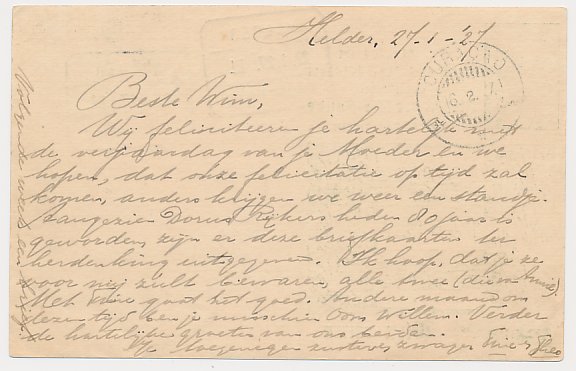 Helder, 27-1-'27
CURAÇAO
Beste Wim,
Wij feliciteeren je hartelijk met
de verjaardag van je Moeder en we
hopen, dat onze felicitatie op tijd zal
komen, anders krijgen we weer een standje.
Aangezien Dorus Rijkers heden 80 jaar is
geworden, zijn er deze briefkaarten ter
herdenking uitgegeven. Ik hoop, dat je ze
voor mij zult bewaren, alle twee (die van Annie).
Met mie gaat het goed. Andere maand om
dezen tijd ben je misschien oom Willem. Verder
de hartelijke groeten van ons beiden.
Je toegenegen zuster en zwager Mie & Theo
Volgende week een brief.